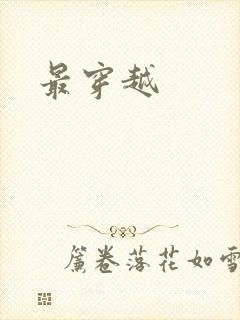 最穿越
簾卷落花如雪